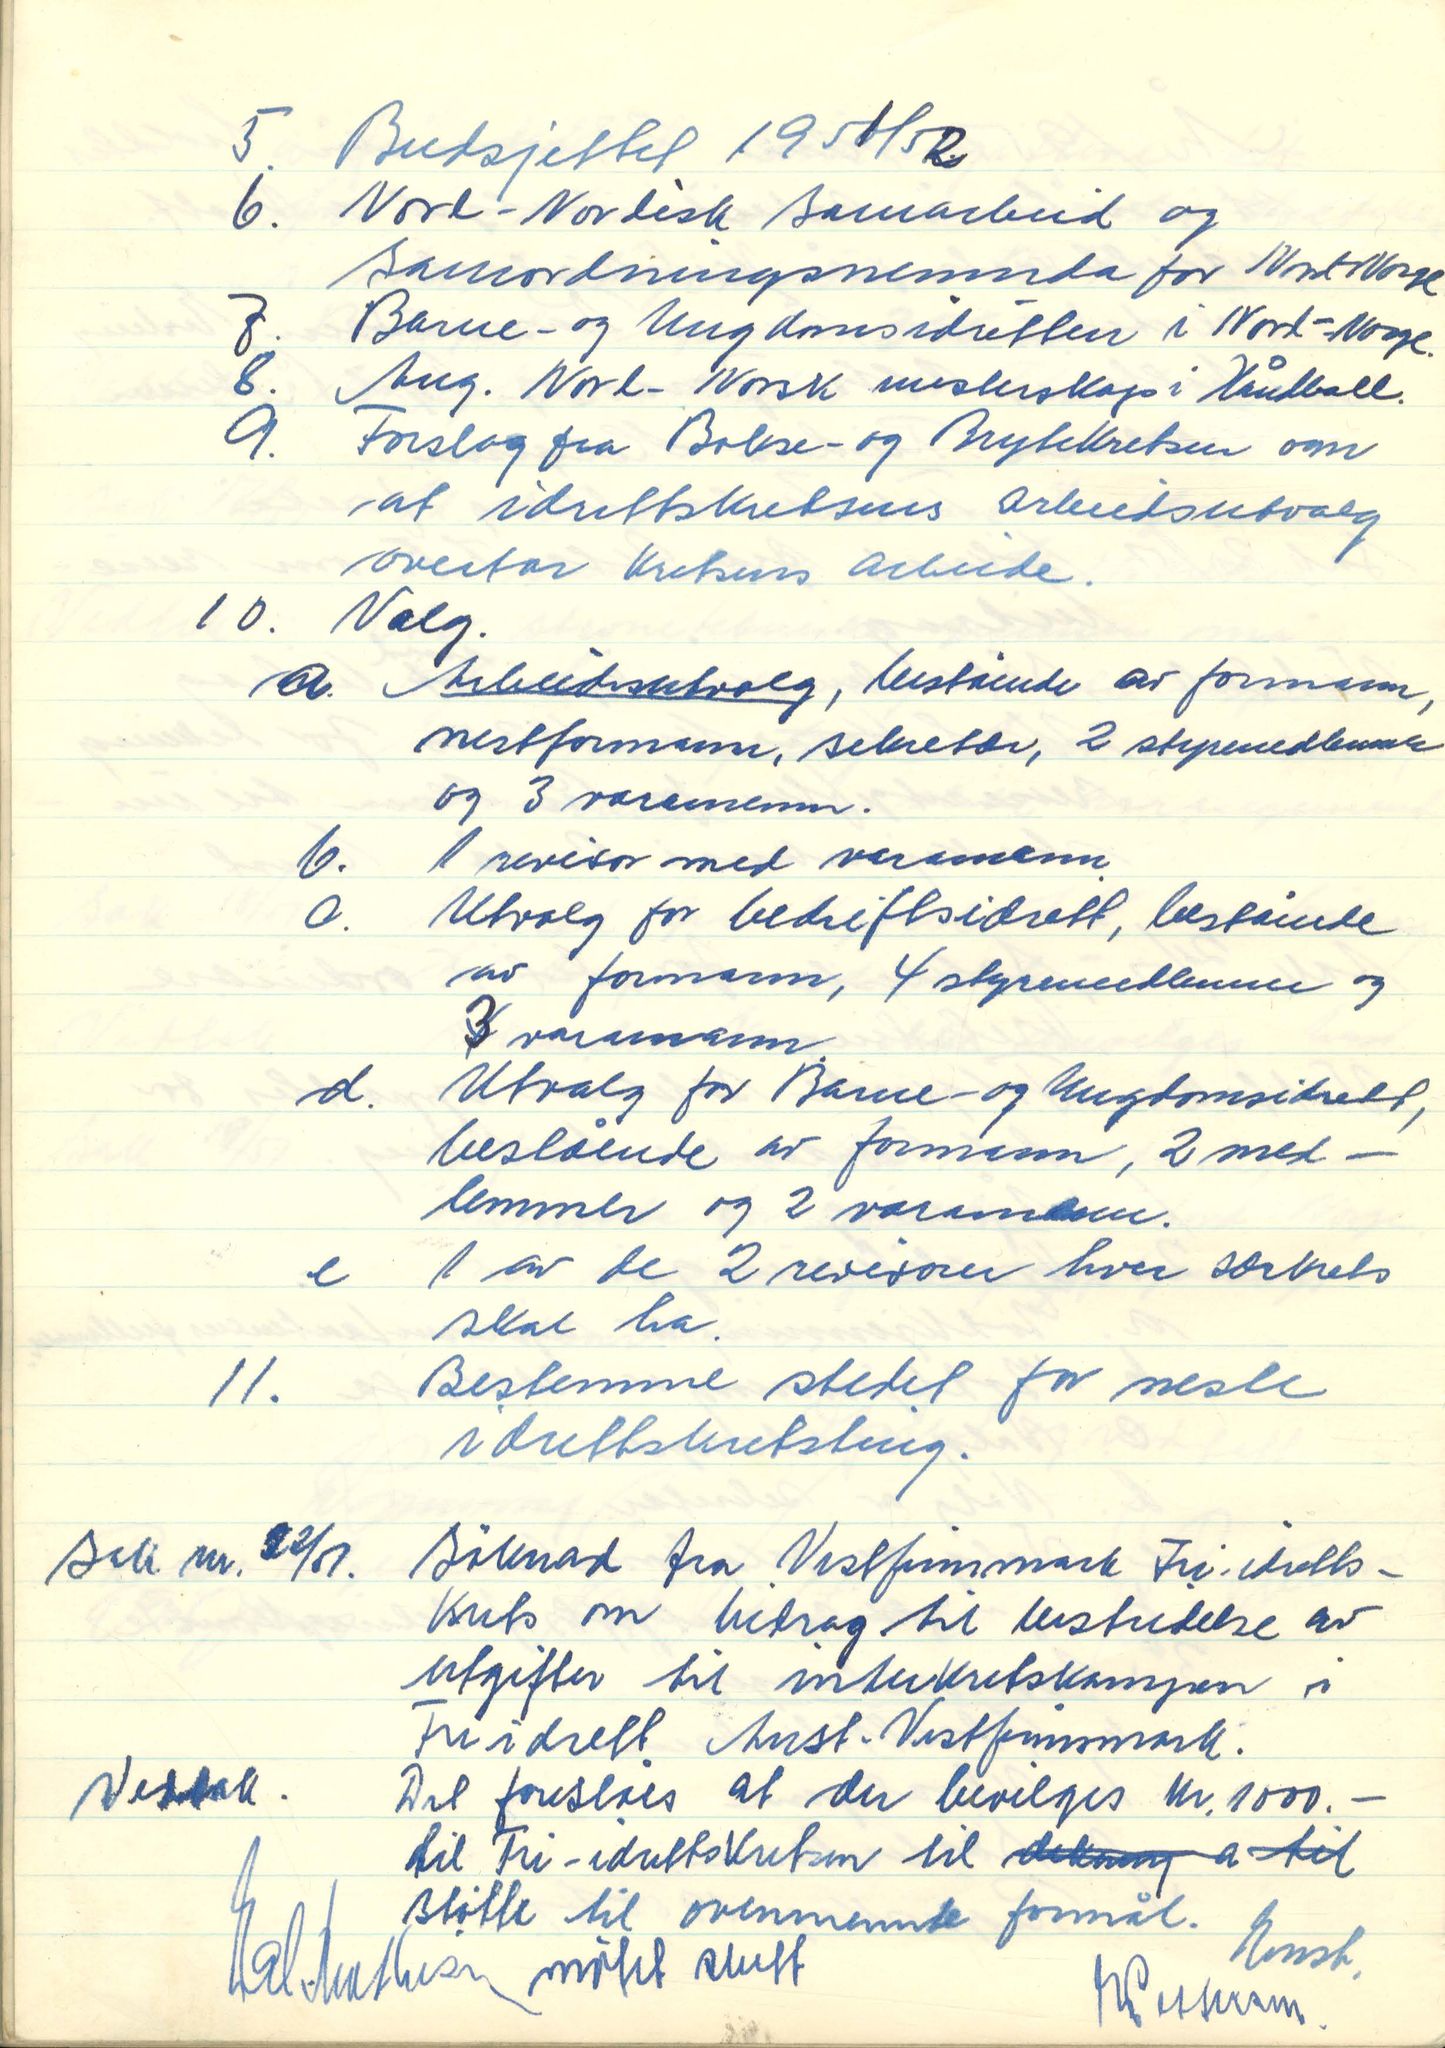 5. Budsjettet 1951/52
6. Nord-Nordisk samarbeid og
samordningsnemnda for Nord-Norge
7. Barne- og Ungdomsidretten i Nord-Norge.
8. Ang. Nord-Norsk mesterskap i Håndball.
9. Forslag fra Bokse- og Brytekretsen om
at idrettskretsens arbeidsutvalg
overtar kretsens arbeide.
10. Valg.
a. Arbeidsutvalg, bestående av formann,
nestformann, sekretær, 2 styremedlemmer
og 3 varamenn.
b. 1 revisor med varamann.
c. Utvalg for bedriftsidrett, bestående
av formann, 4 styremedlemmer og
3 varamann.
d. Utvalg for Barne- og Ungdomsidrett,
bestående av formann, 2 med-
lemmer og 2 varamenn.
e 1 av de 2 revisorer hver særkrets
skal ha.
11. Bestemme stedet for neste
idrettskretsting.
Sak nr. 22/51. Söknad fra Vestfinnmark Fri-idretts-
krets om bidrag til bestridelse av
utgifter til interkretskampen i
Fri idrett Aust-Vestfinnmark.
Vedtak. Det foreslåes at der bevilges kr. 1000.-
til Fri-idrettskretsen til dekning a til
støtte til ovennevnte formål. Enst.
mötet slutt